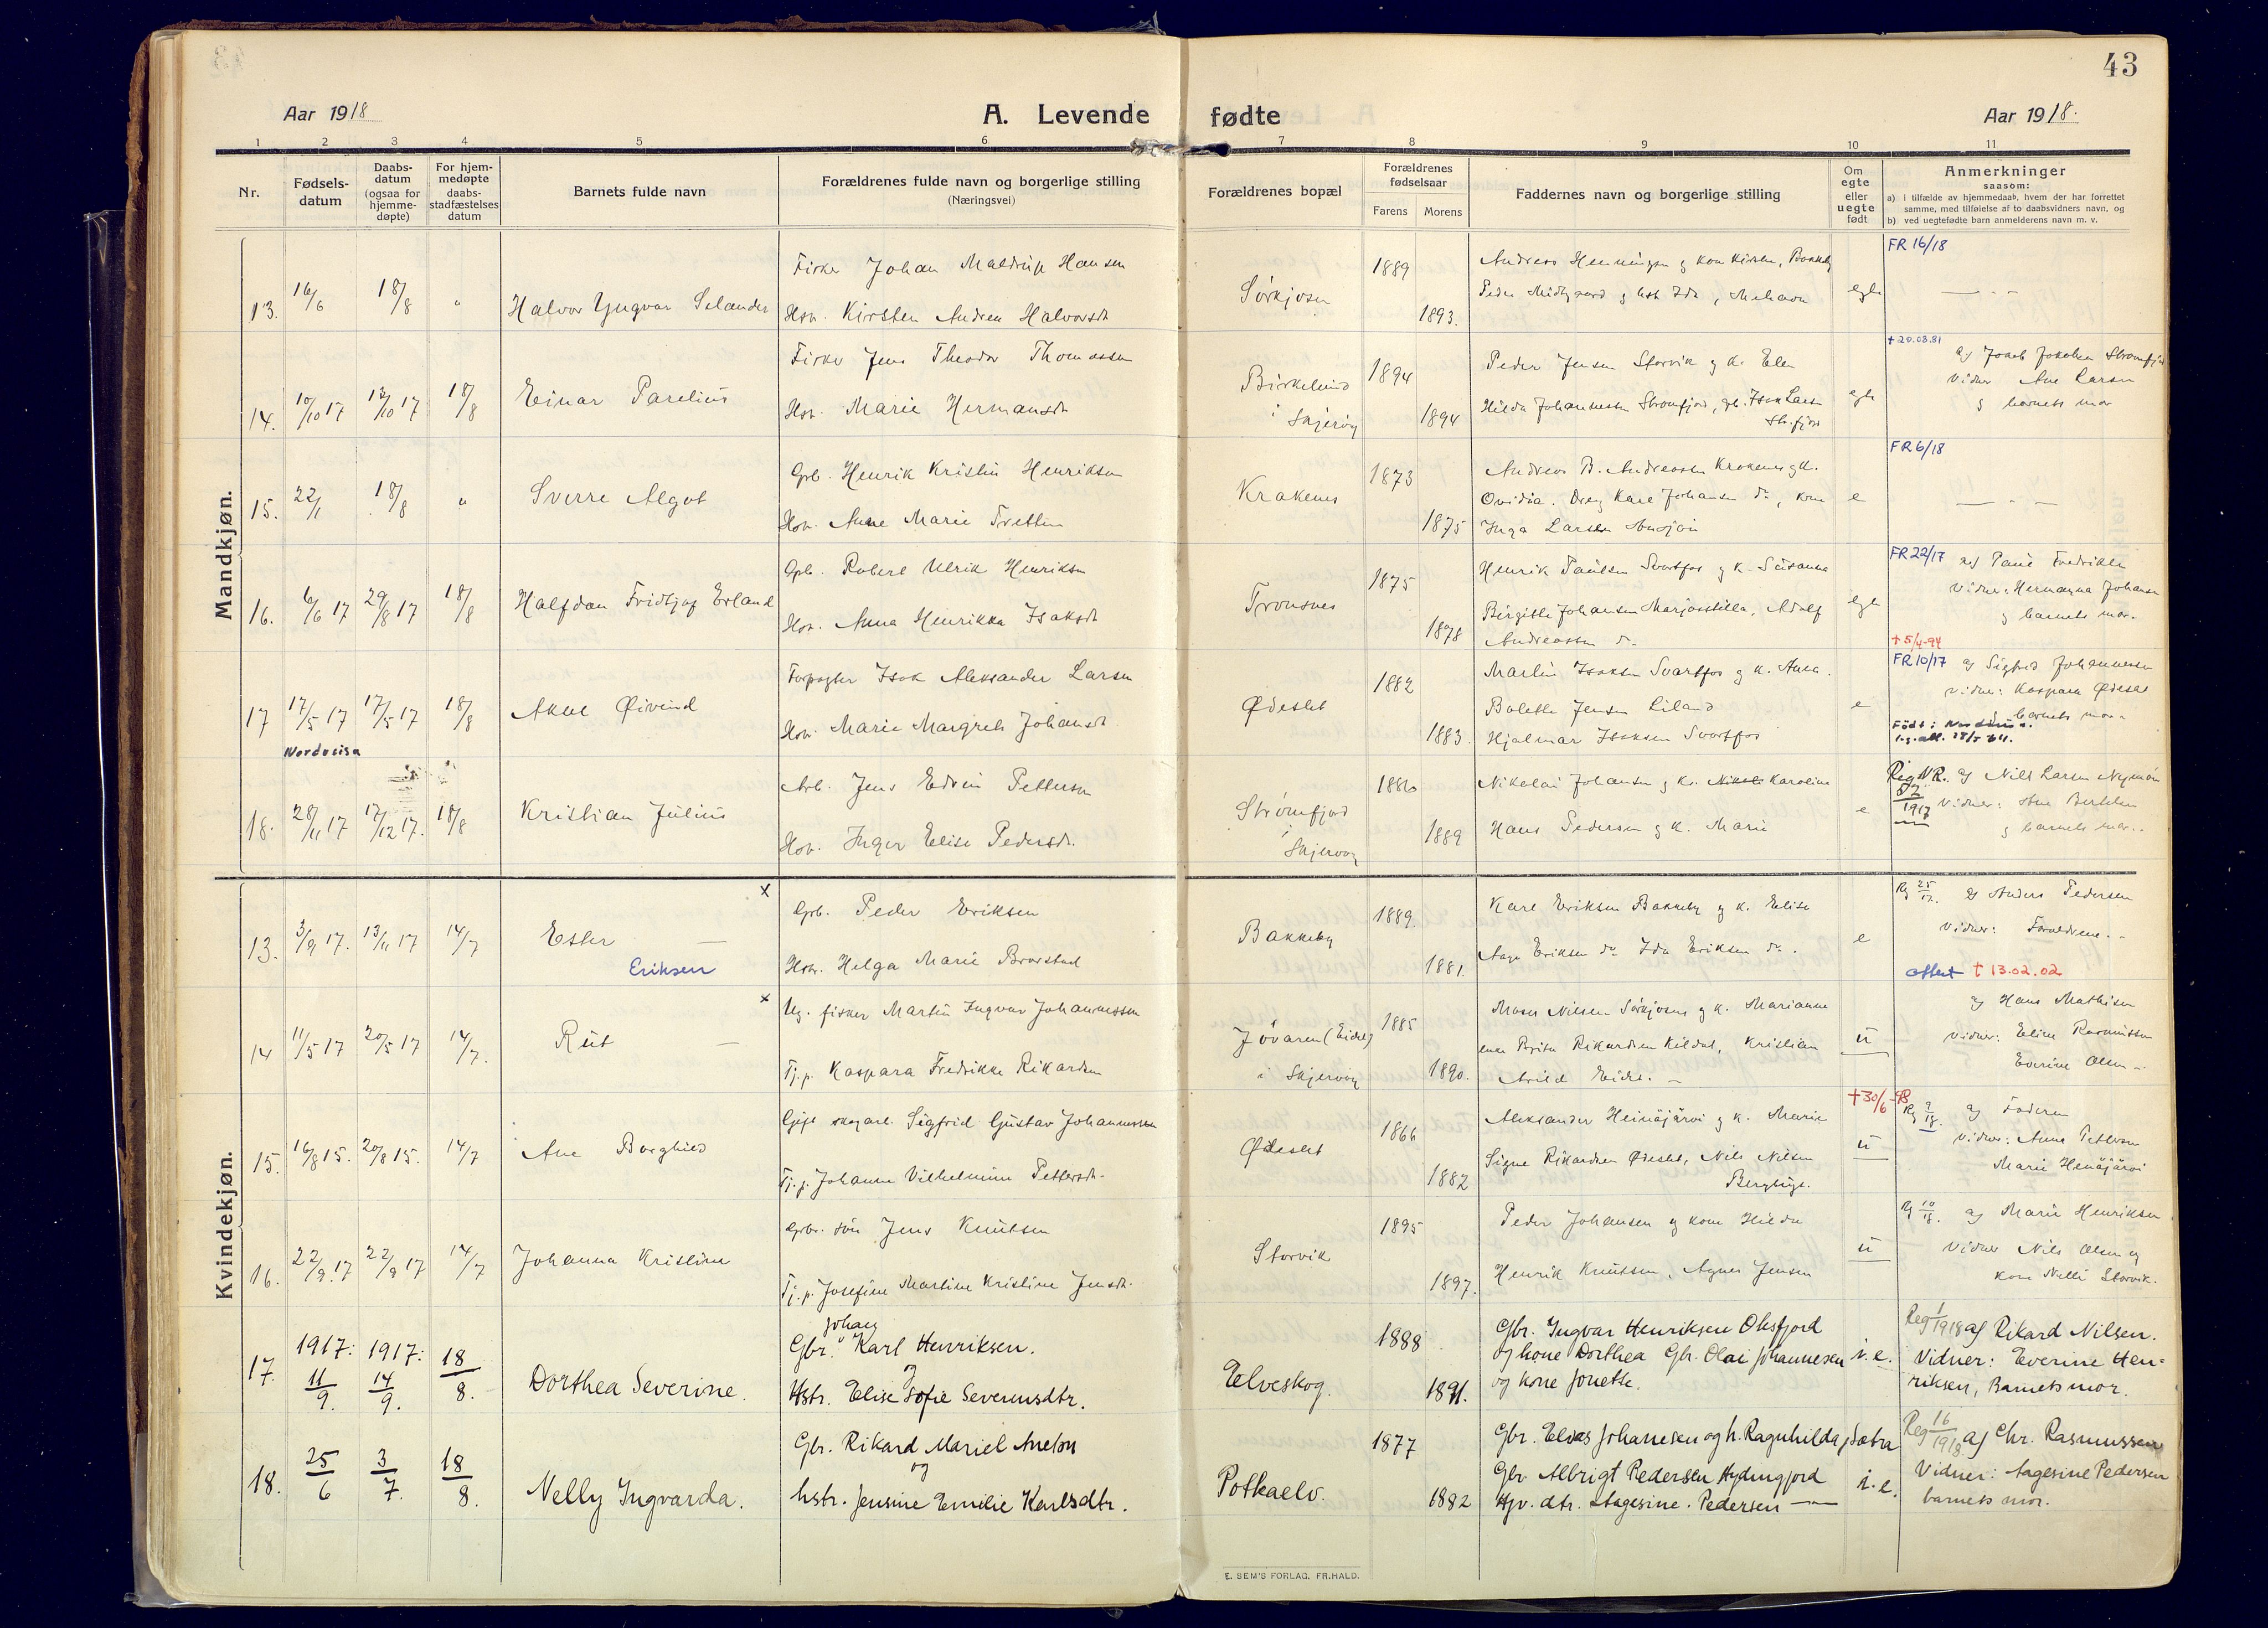 43
Aar 1918
A. Levende fødte
Aar 1918.
1 2 3 4 5 6 7 8 9 10 11
Nr.
Fødsels-
datum
Daabs-
datum
(ogsaa for
hjemme-
døpte)
For hjem-
medøpte
daabs-
stadfæstelses
datum
Barnets fulde navn
Forældrenes fulde navn og borgerlige stilling
(Næringsvei)
Forældrenes bopæl
Forældrenes
fødselsaar
Farens Morens
Faddernes navn og borgerlige stilling
Om
egte
eller
uegte
født
Anmerkninger
saasom:
a) i tilfælde av hjemmedaab, hvem der har forrettet
samme, med tilføielse af to daabsvidners navn, og
b) ved uegtefødte barn anmelderens navn m. v.
Mandkjøn.
13. 16/6 18/8 " Halvor Yngvar Selander
Fisker Johan Maldrup Hansen
Hstr. Kirsten Andrea Halvorsdt
Sørkjosen 1889 1893.
Andreas Henningsen og kone Kirsten, Bakkeby
Peder Midtgaard og hst Ida, Mehavn
egte
FR 16/18
14. 10/10 17 13/10 17 18/8 Einar Parelius
Fisker Jens Theodor Thomassen
Hstr. Marie Hermansdt
Birkelund
i
Skjervøy
1894 1894
Peder Jensen Storvik og k. Elen
Hilda Johannessen Straumfjord, gb. Isak Larsen
Str.fjord
egte
+20.08.81
af Jakob Jakobsen Straumfjord
Vidner Ane Larsen
og barnets mor
15. 22/1 18/8 " Sverre Algot
Grb. Henrik Kristin Henriksen
Hstr. Anne Marie Tretten
Krakenes 1873 1875
Andreas B. Andreassen Krakenes og k.
Ovidia. Dreng Kare Johansen do, kone
Inga Larsen
e
FR 6/18
16. 6/6 17 29/8 17 18/8 Halfdan Fridtjof Erland
Gpb. Robert Ulrik Henriksen
Hstr. Anna Henrikka Isaksdt
Tronsnes 1875 1878
Henrik Paulsen Svartfos og k. Susanna
Birgitte Johansen Marjosstilla, Adolf
Andreassen do.
egte
FR 22/17
af Pauie Fredrikke
Vidner: Hermanna Johansen
og barnets mor.
+5/4-94
17 17/5 17 17/5 17 18/8 Aksel Øivind
Nordreisa
Forpagter Isak Aleksander Larsen
Hstr. Marie Margrete Johansdt
Ødeslet 1882 1883.
Martin Isaksen Svartfos og k. Anna.
Bolette Jensen Liland
Hjalmar Isaksen Svartfos
e
FR 10/17
af Sigfred Johannessen
vidner: Kaspara Ødeslet
og barnets mor.
Født i Nordreisa.
18. 28/11 17 17/12 17. 18/8 Kristian Julius
Arb. Jens Edvin Pettersen
Hstr. Inger Elise Pedersdt.
Strømfjord
i
Skjervøy
1886 1889
Nikolai Johansen og k. Karoline
Hans Pedersen og k. Marie
e
Reg NR.
52
1917
af Nils Larsen Nymoen
Vidner: Ane Bertelsen
og barnets mor.
Kvindekjøn.
13. 3/9 17. 13/11 17 14/7 Ester
Eriksen
x
Grb. Peder Eriksen
Hstr. Helga Marie Brorstad
Bakkeby 1889. 1881.
Karl Eriksen Bakkeby og k. Elise
Aage Eriksen do Ida Eriksen do.
e
Rg 25/17.
af Anders Pedersen
Vidner: Forældrene.
attest + 13.02.02
14 11/5 17 20/5 17 14/7. Rut
x
Ug. fisker Martin Ingvar Johannessen
Tj.p. Kaspara Fredrikke Rikardsen
Jøvaren (Eidet)
i Skjervøy
1885 1890.
Moses Nilsen Sørkjosen og k. Marianne
enke Brita Rikardsen Kildal, Kristian
Arild Eidet.
u
af Hans Mathisen
vidner: Eline Rasmussen
Everine Olsen
15. 16/8 15. 20/8 15. 14/7 Ane Borghild
Gift skogarb. Sigfrid Gustav Johannessen
Tj.p. Johanna Vilhelmine Pettersdt.
Ødeslet 1866 1882
Aleksander Heinäjärvi og k. Marie
Signe Rikardsen Ødeslet, Nils Nilsen
Berglyd.
u
+30/6-98
Rg 9/18.
af Faderen
Vidner: Anna Pettersen
Marie Henäjärvi
16. 22/9 17 22/9 17 14/7 Johanna Kristine
Grbr. søn Jens Knutsen
Tj.p. Josefine Martine Kristine Jensdt.
Storvik 1895 1897.
Peder Johansen og kone Hilda
Henrik Knutsen, Agnes Jensen
u
Rg 10/18.
af Marie Henriksen
Vidner Nils Olsen og
kone Nelli Storvik.
17. 1917: 11/9. 1917: 14/9. 18/8. Dorthea Severine.
Johan
Gbr. Karl Henriksen.
og
Hstr. Elise Sofie Severinsdtr.
Elveskog. 1888 1891.
Gbr. Ingvar Henriksen Oksfjord
og kone Dorthea Gbr. Olai Johannesen
og kone Jonette.
i.e.
Reg 1/1918 af Rikard Nilsen.
Vidner: Everine Hen-
riksen, Barnets mor.
18. 25/6 3/7. 18/8. Nelly Ingvarda.
Gbr. Rikard Mariel Antelsen
og
hstr. Jensine Emilie Karlsdtr.
Potkaelv. 1877 1882
Gbr. Elias Johannesen og h. Ragnhilda, Sætra
Gbr. Albrigt Pedersen Hydingfjord
Hjv. dtr. Stagesine. Pedersen
i.e.
Reg 16/1918 af Chr. Rasmussen
Vidner: Aagesine Pedersen
barnets mor.
E. SEM'S FORLAG, FR.HALD.